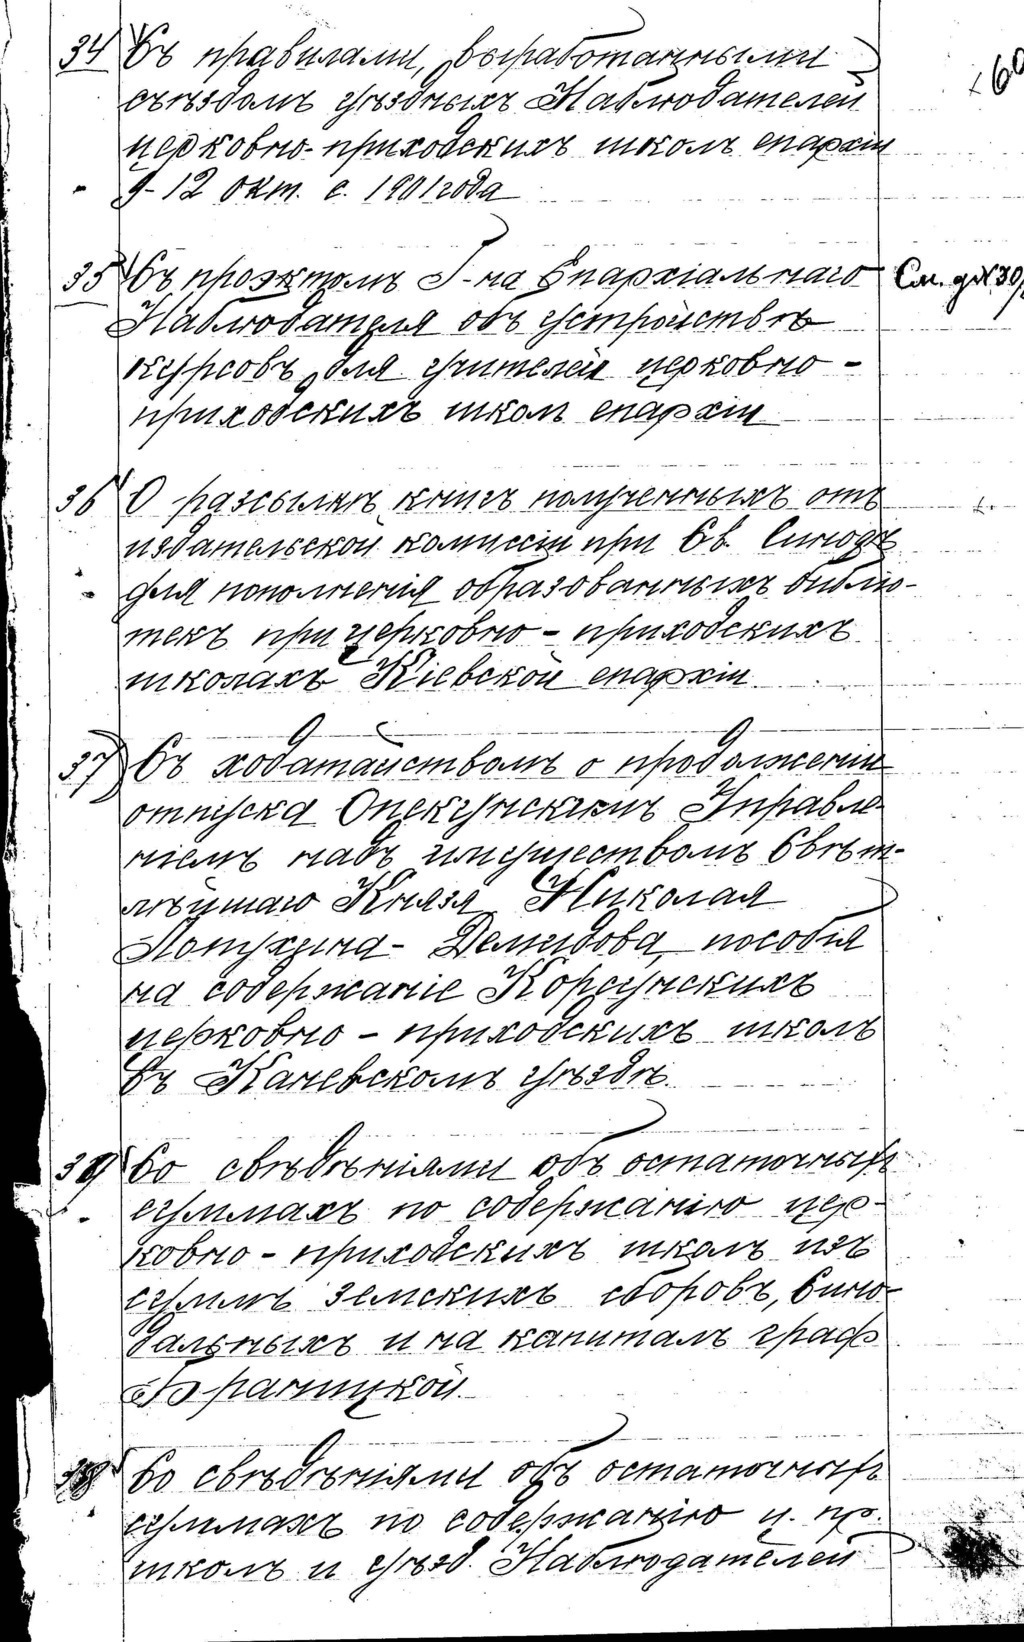 34 Съ правилами, выработанными
съѣздомъ уѣздныхъ Наблюдателей
церковно-приходскихъ школъ епархіи
9-12 окт. с. 1901 года
35 Съ проэктомъ Г-на Епархіальнаго
Наблюдателя объ устройствѣ
курсовъ для учителей церковно-
приходскихъ школ епархіи
См. д. № 30/
36 О разсылкѣ книгъ полученныхъ отъ
издательской комиссіи при Св. Синодѣ
для пополненія образованныхъ библіо-
текъ при церковно-приходскихъ
школахъ Кіевской епархіи
37 Съ ходатайствомъ о продолженіи
отпуска Опекунскимъ Управле-
ніемъ надъ имуществомъ Свѣт-
лѣйшаго Князя Николая
Лопухина-Демидова пособія
на содержаніе Корсунскихъ
церковно-приходскихъ школъ
въ Каневскомъ уѣздѣ.
38 Со свѣдѣніями объ остаточных
суммахъ по содержанію цер-
ковно-приходскихъ школъ изъ
суммъ земскихъ сборовъ, Сино-
дальныхъ и на капиталъ граф
Браницкой.
Со свѣдѣніями объ остаточных
суммахъ по содержанію ц. пр.
школъ и уѣзд. Наблюдателей